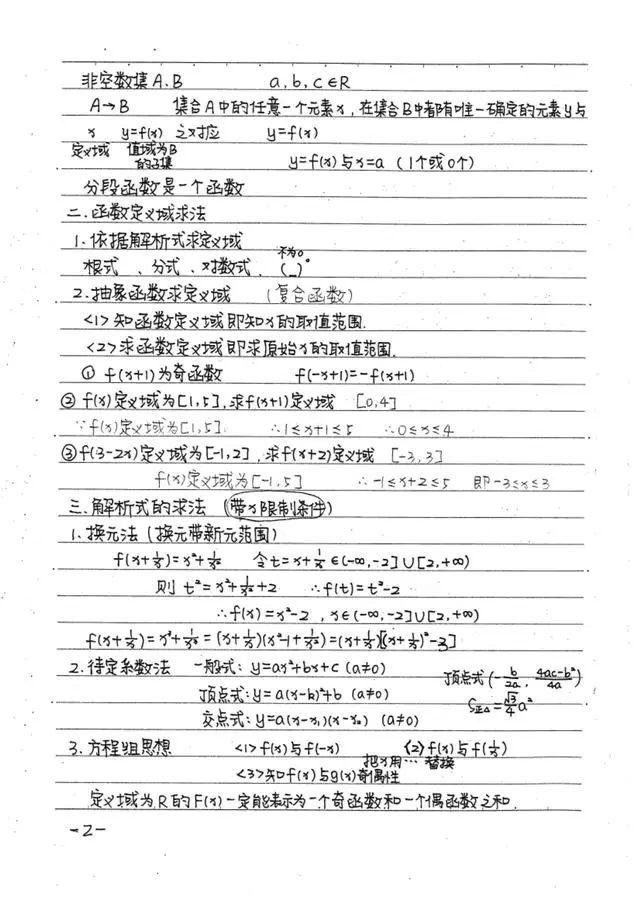 非空数集A、B a,b,c∈R
A→B 集合A中的任意一个元素x,在集合B中都有唯一确定的元素y与
x y=f(x) 之对应 y=f(x)
定义域 值域为B的子集 y=f(x)与x=a (1个或0个)
分段函数是一个函数
二.函数定义域求法
1.依据解析式求定义域
根式、分式、对数式、(_)° 不为0
2.抽象函数求定义域 (复合函数)
<1>知函数定义域即知x的取值范围.
<2>求函数定义域即求原始x的取值范围.
① f(x+1)为奇函数 f(-x+1)=-f(x+1)
② f(x)定义域为[1,5],求f(x+1)定义域 [0,4]
∵f(x)定义域为[1,5]; ∴1≤x+1≤5 ∴0≤x≤4
③f(3-2x)定义域为[-1,2],求f(x+2)定义域 [-3,3]
f(x)定义域为[-1,5] ∴-1≤x+2≤5 即-3≤x≤3
三.解析式的求法 (带x限制条件)
1.换元法(换元带新元范围)
f(x+1/x)=x²+1/x² 令t=x+1/x∈(-∞,-2]∪[2,+∞)
则 t²=x²+1/x²+2 ∴f(t)=t²-2
∴f(x)=x²-2,x∈(-∞,-2]∪[2,+∞)
f(x+1/x)=x³+1/x³=(x+1/x)(x²-1+1/x²)=(x+1/x)[(x+1/x)²-3]
2.待定系数法 一般式:y=ax²+bx+c (a≠0) 顶点式(-b/2a, 4ac-b²/4a)
顶点式:y=a(x-k)²+b (a≠0) S正△=√3/4 a²
交点式:y=a(x-x₁)(x-x₂) (a≠0)
3.方程组思想 <1>f(x)与f(-x) <2>f(x)与f(1/x)
把x用…替换
<3>知f(x)与g(x)奇偶性
定义域为R的F(x)一定能表示为一个奇函数和一个偶函数之和.
-2-